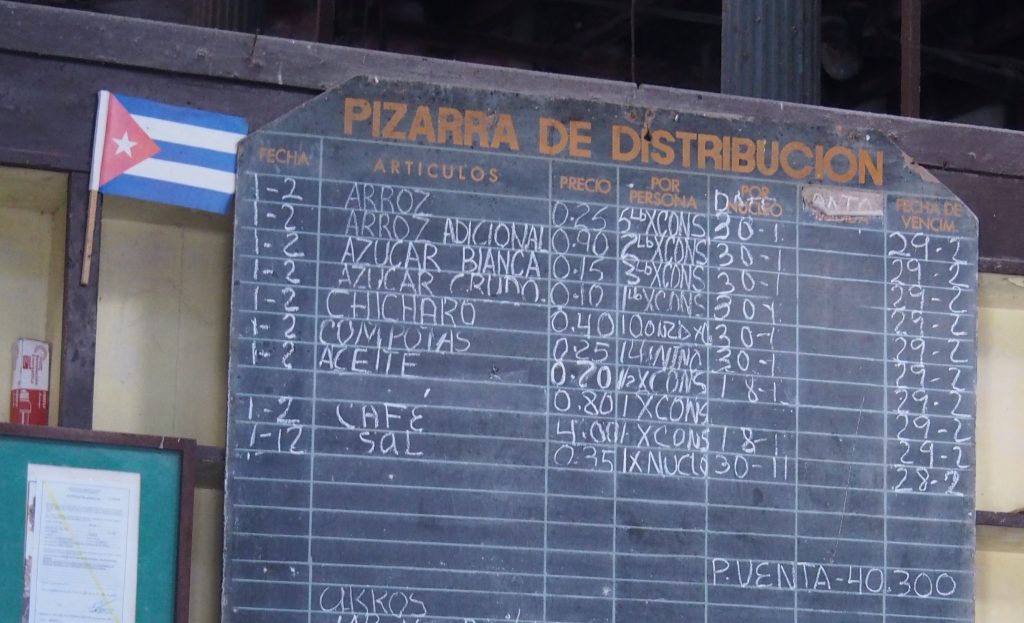 PIZARRA DE DISTRIBUCION
FECHA ARTICULOS PRECIO POR PERSONA POR NUCLEO FECHA DE VENCIM.
1-2 ARROZ 0.25 XCONS 30-1 29-2
1-2 ARROZ ADICIONAL 0.90 2lb XCONS 30-1 29-2
1-2 AZUCAR BLANCA 0.15 3lb XCONS 30-1 29-2
1-2 AZUCAR CRUDO 0.10 1lb XCONS 30-1 29-2
1-2 CHICHARO 0.40 30-1 29-2
1-2 COMPOTAS 0.25 14 NINO 30-1 29-2
1-2 ACEITE 0.20 XCONS 18-1 29-2
0.80 1 XCONS 29-2
1-2 CAFE 4.00 XCONS 18-1 29-2
1-12 SAL 0.35 1XNUCLO 30-11 28-2
P.VENTA-40.300